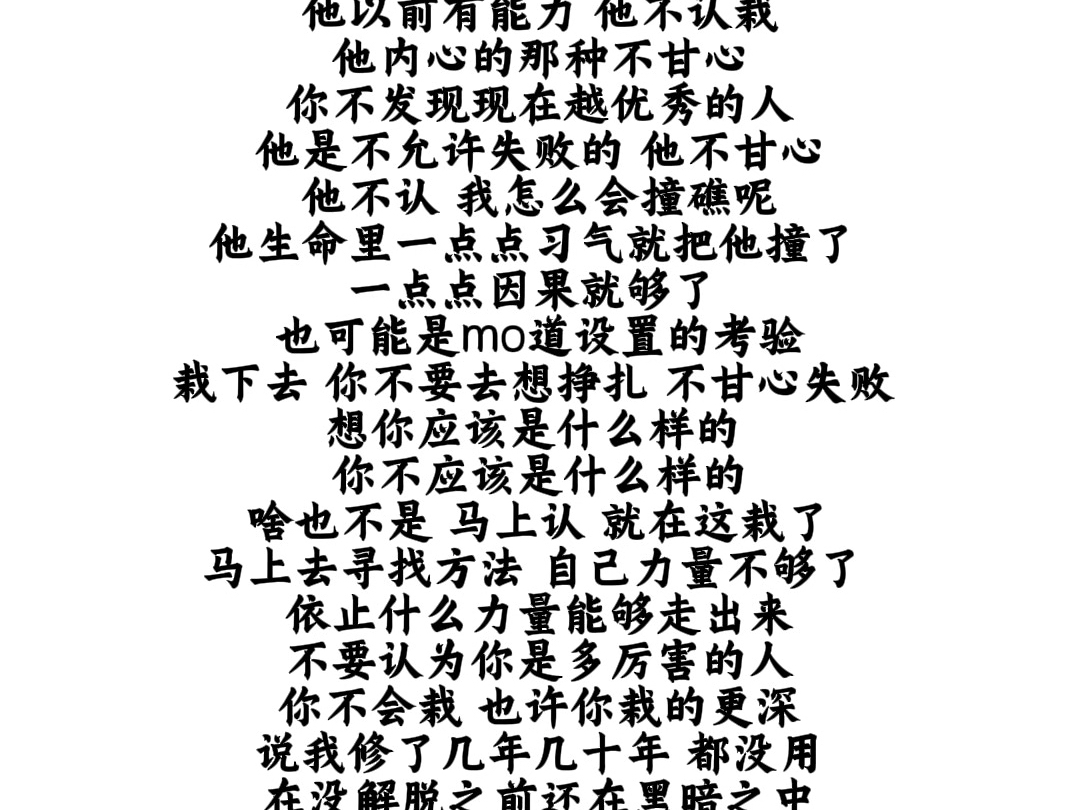 他以前有能力 他不认栽
他内心的那种不甘心
你不发现现在越优秀的人
他是不允许失败的 他不甘心
他不认 我怎么会撞礁呢
他生命里一点点习气就把他撞了
一点点因果就够了
也可能是mo道设置的考验
栽下去 你不要去想挣扎 不甘心失败
想你应该是什么样的
你不应该是什么样的
啥也不是 马上认 就在这栽了
马上去寻找方法 自己力量不够了
依止什么力量能够走出来
不要认为你是多厉害的人
你不会栽 也许你栽的更深
说我修了几年几十年 都没用
在没解脱之前还在黑暗之中